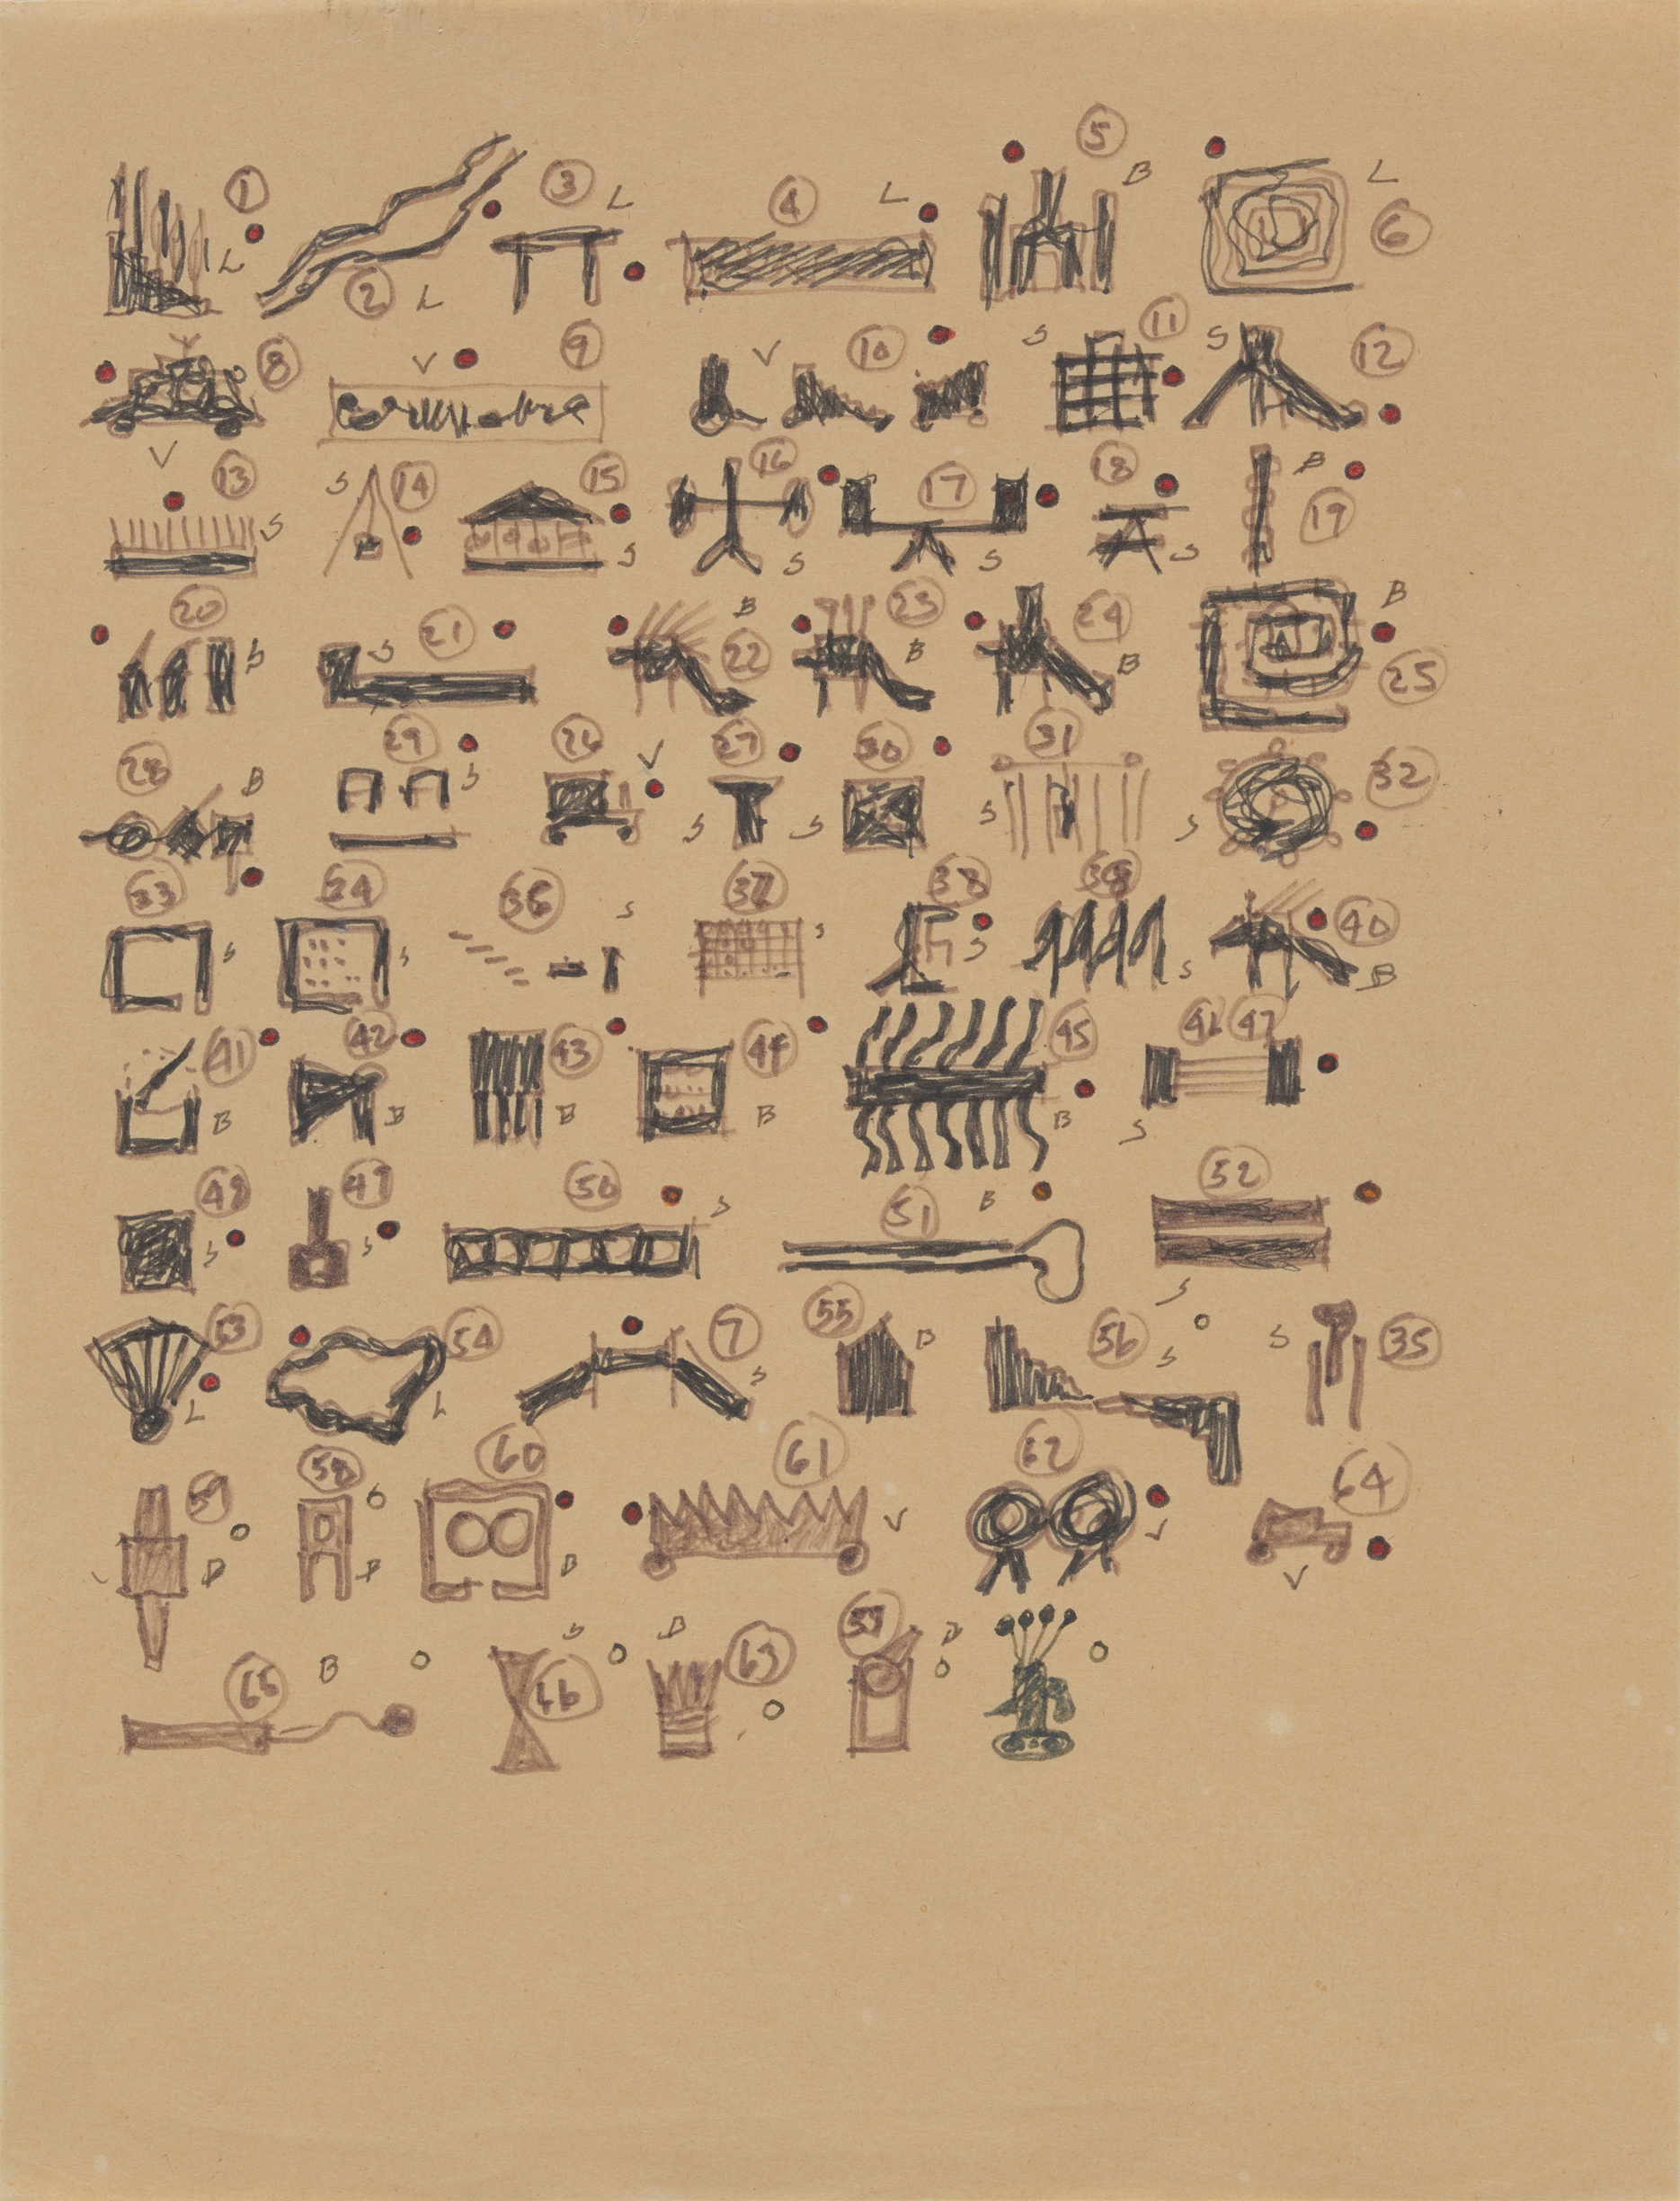 1 L 2 L 3 L 4 L 5 B L 6
8 V V 9 V 10 S 11 S 12
13 S S 14 15 S 16 S 17 S 18 S B 19
20 S 21 S B 22 23 B 24 B B 25
28 B 29 S 26 V 27 S 30 S 31 S S 32
33 S 34 S 36 S 37 S 38 S 39 S 40 B
41 B 42 B 43 B 44 B 45 B 46 47 S
48 S 49 S 50 S 51 B 52 S
53 L 54 L 7 S 55 B 56 S S 35
B 58 B 60 B 61 V 62 V 64 V
65 B S 66 B 63 B